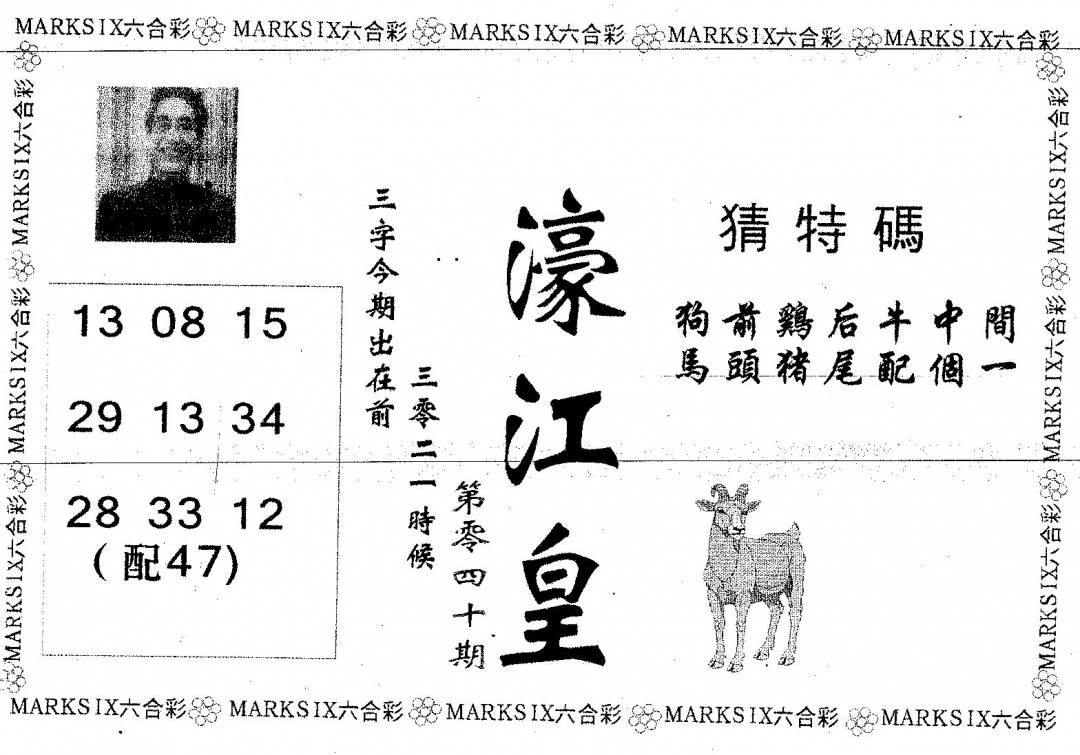 MARKSIX六合彩 MARKSIX六合彩 MARKSIX六合彩 MARKSIX六合彩 MARKSIX六合彩
MARKSIX六合彩 MARKSIX六合彩 MARKSIX六合彩
猜特碼
狗前鷄后牛中間
馬頭猪尾配個一
濠江皇
第零四十期
三字今期出在前
三零二一時候
13 08 15
29 13 34
28 33 12
(配47)
MARKSIX六合彩 MARKSIX六合彩 MARKSIX六合彩
MARKSIX六合彩 MARKSIX六合彩 MARKSIX六合彩 MARKSIX六合彩 MARKSIX六合彩